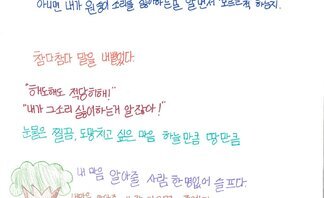 아니면 내가 원숭이 소리를 싫어하는걸 알면서 모르는척 하는지.
참다참다 말을 내뱉었다.
"해도해도 적당히해!"
"내가 그소리 싫어하는거 알잖아!"
눈물은 찔끔, 도망치고 싶은 마음 하늘만큼 땅만큼
내 마음 알아줄 사람 한명없어 슬프다.